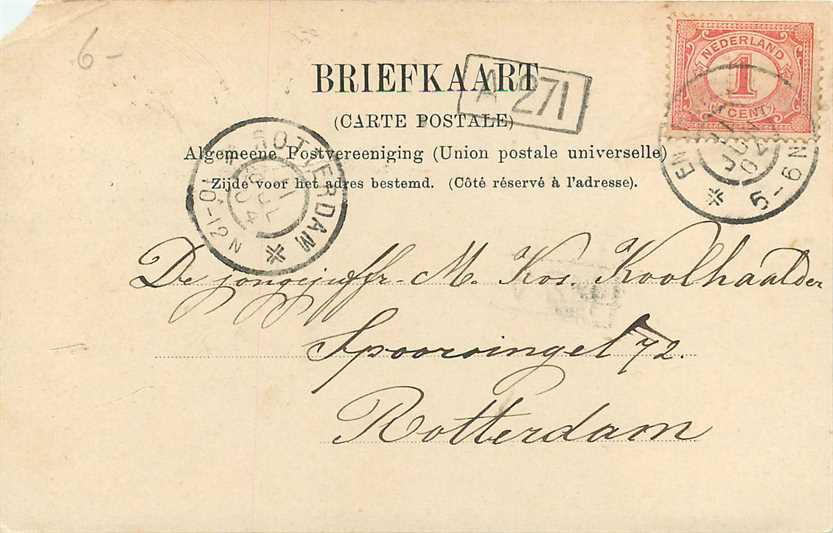 6-
NEDERLAND
1
CENT
BRIEFKAART
A 271
(CARTE POSTALE)
Algemeene Postvereeniging (Union postale universelle)
Zijde voor het adres bestemd. (Côté réservé à l'adresse).
ROTTERDAM
10-12N
5-6N
De jongejuffr. M. Kos. Koolhaalder
Spoorsingel 72.
Rotterdam